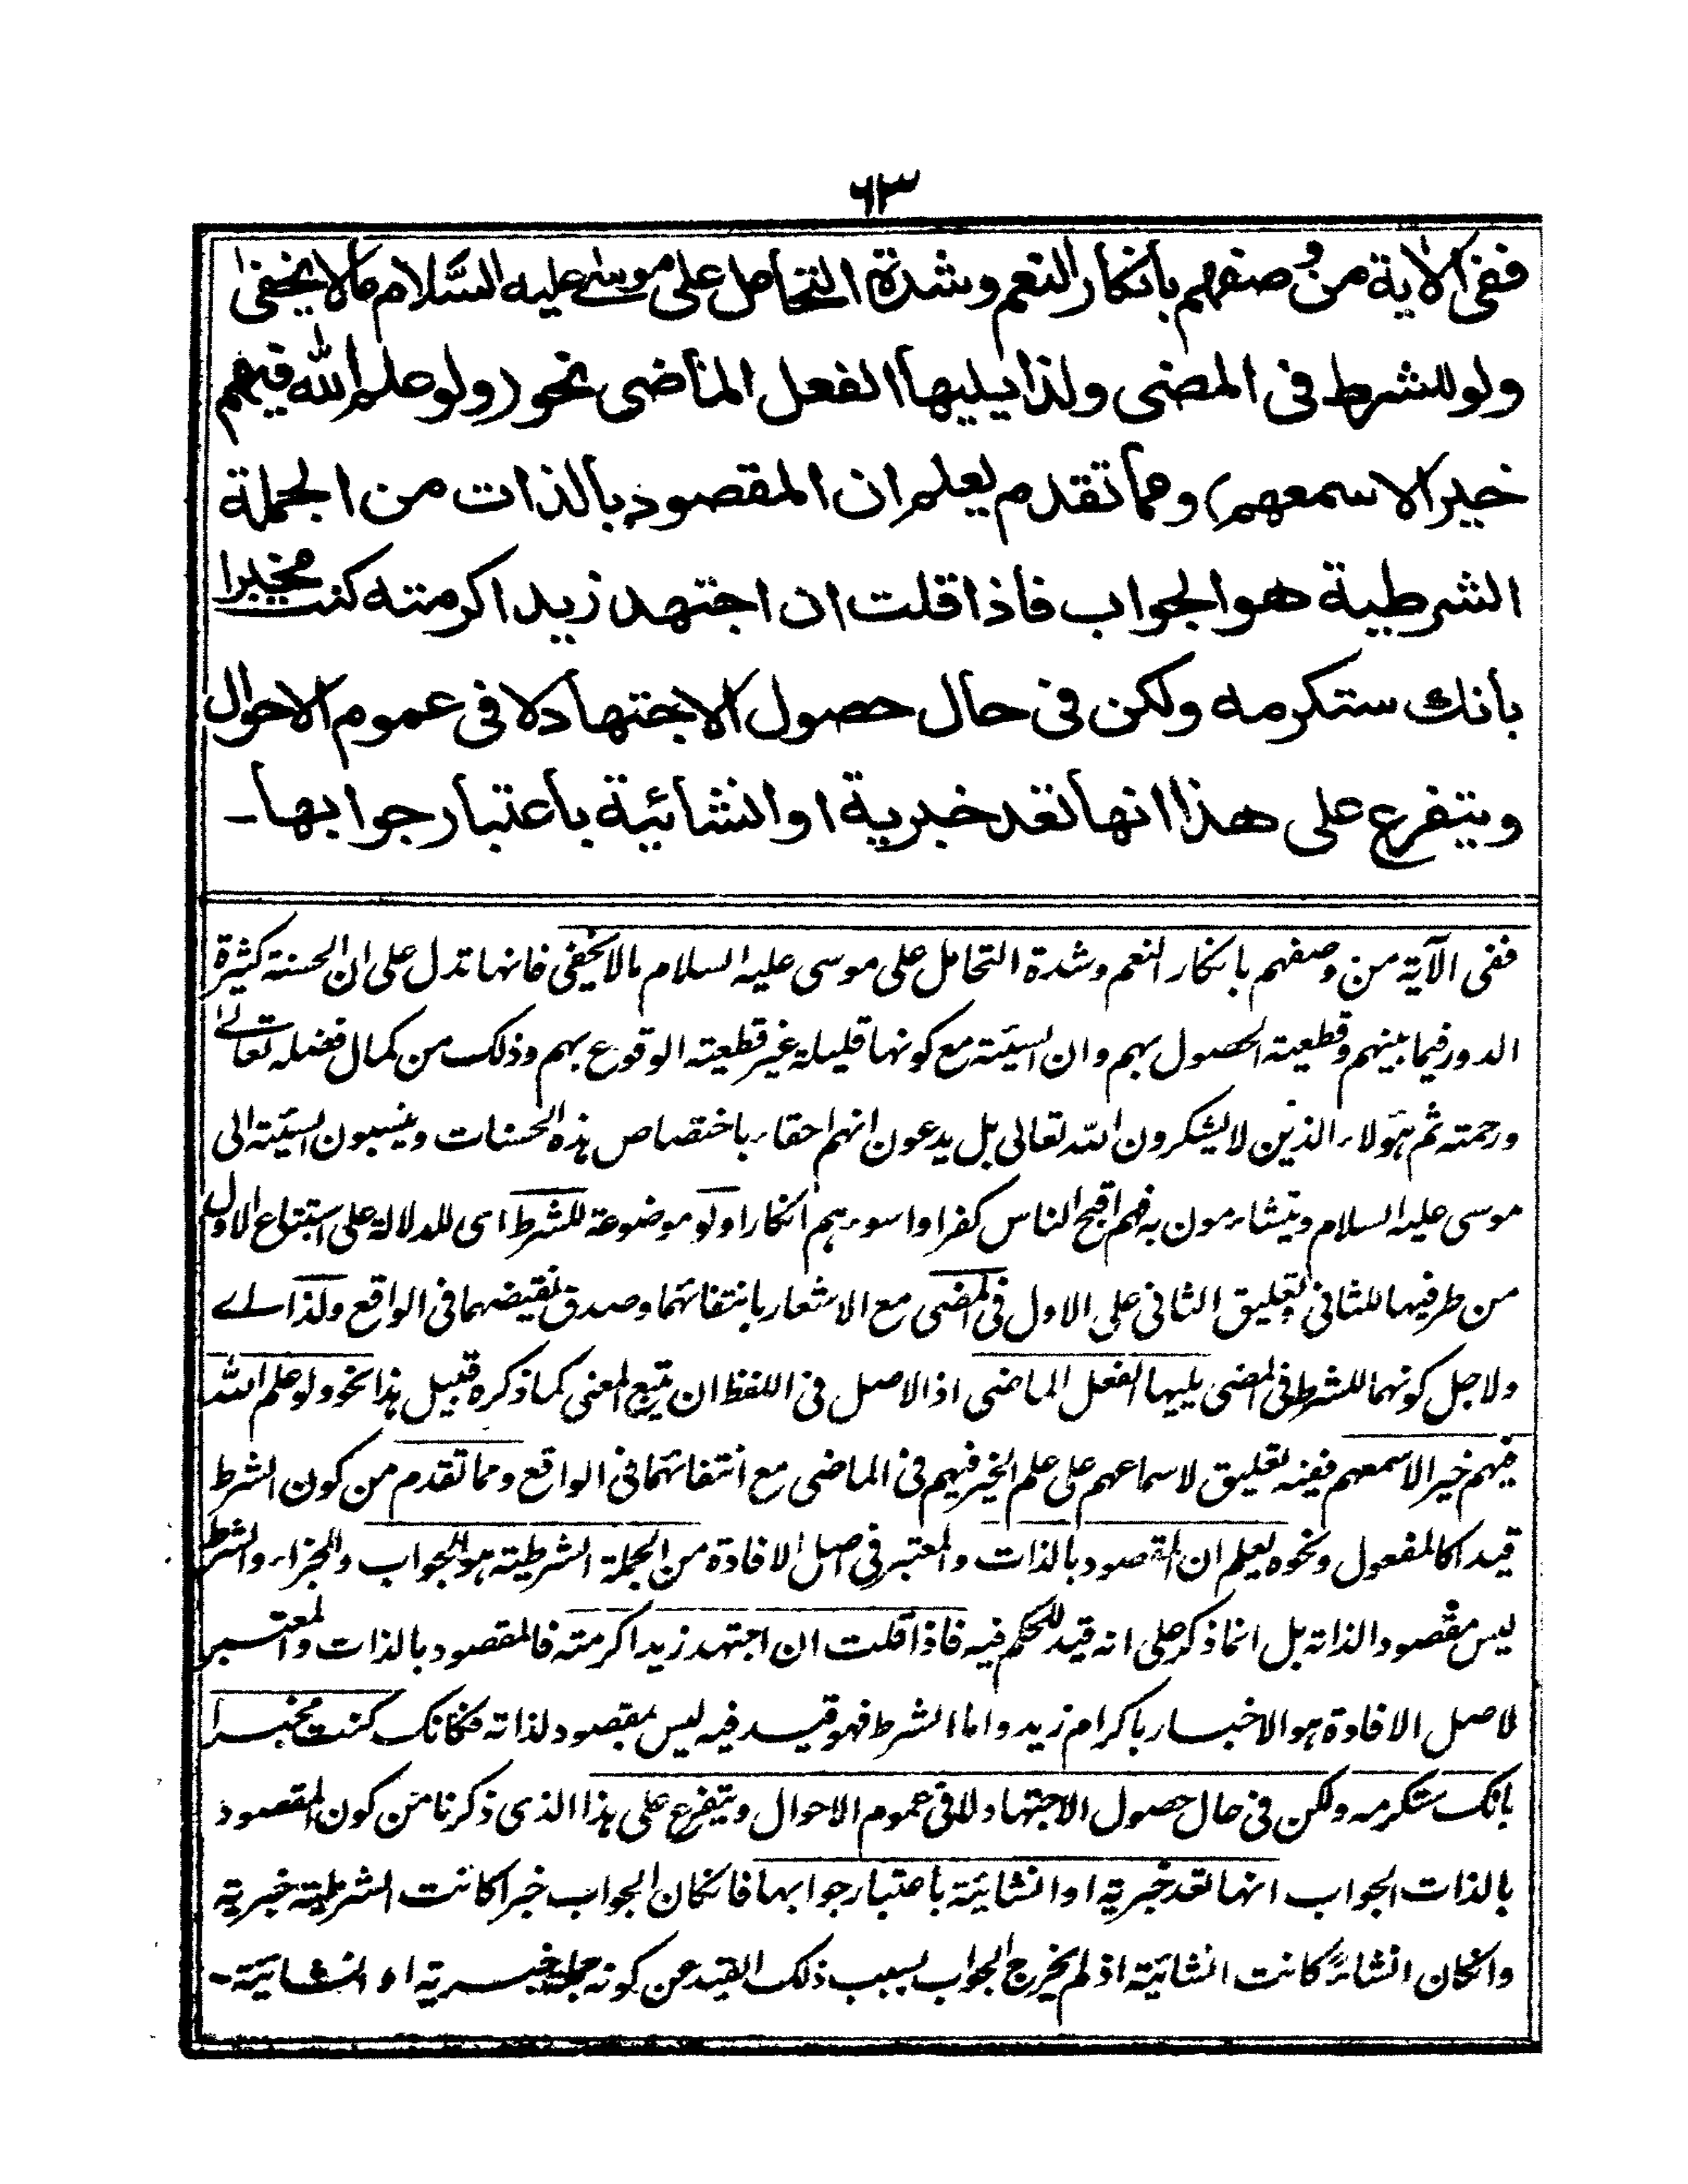 ٦٣
ففى الاية من وصفهم بانكار النعم وشدة التحامل على موسى عليه السلام مالا يخفى
ولو للشرط فى المضى ولذا يليها الفعل الماضى نحو (ولو علم الله فيهم
خيرا لاسمعهم) ومما تقدم يعلم ان المقصود بالذات من الجملة
الشرطية هو الجواب فاذا قلت ان اجتهد زيد اكرمته كنت مخبرا
بانك ستكرمه ولكن فى حال حصول الاجتهاد لا فى عموم الاحوال
ويتفرع على هذا انها تعد خبرية او انشائية باعتبار جوابها۔
ففى الآية من وصفهم بانكار النعم وشدة التحامل على موسى عليه السلام مالا يخفى فانها تدل على ان الحسنة كثيرة
الدور فيما بينهم وقطعية الحصول بهم وان السيئة مع كونها قليلة غير قطعية الوقوع بهم وذلك من كمال فضله تعالى
ورحمته ثم هؤلاء الذين لا يشكرون الله تعالى بل يدعون انهم احقاء باختصاص هذه الحسنات وينسبون السيئة الى
موسى عليه السلام ويتشاءمون به فهم اقبح الناس كفرا واسوءهم انكارا ولو موضوعة للشرط اى للدلالة على استتباع الاول
من طرفيها للثانى وتعليق الثانى على الاول فى المضى مع الاشعار بانتفائهما وصدق نقيضهما فى الواقع ولذا اے
ولاجل كونهما للشرط فى المضى يليها الفعل الماضى اذ الاصل فى اللفظ ان يتبع المعنى كما ذكره قبيل هذا نحو ولو علم الله
فيهم خيرا لاسمعهم ففيه تعليق لاسماعهم على علم الخير فيهم فى الماضى مع انتفائهما فى الواقع ومما تقدم من كون الشرط
قيدا كالمفعول ونحوه يعلم ان المقصود بالذات والمعتبر فى اصل الافادة من الجملة الشرطية هو الجواب والجزاء والشرط
ليس مقصودا لذاته بل انما ذكر على انه قيد للحكم فيه فاذا قلت ان اجتهد زيد اكرمته فالمقصود بالذات والمعتبر
لاصل الافادة هو الاخبار باكرام زيد واما الشرط فهو قيد فيه ليس بمقصود لذاته فكانك كنت مخبرا
بانك ستكرمه ولكن فى حال حصول الاجتهاد لا فى عموم الاحوال ويتفرع على هذا الذى ذكرنا من كون المقصود
بالذات الجواب انها تعد خبرية او انشائية باعتبار جوابها فانكان الجواب خبرا كانت الشرطية خبرية
وانكان انشاءً كانت انشائية اذ لم يخرج الجواب بسبب ذلك القيد عن كونه جملة خبرية او انشائية۔